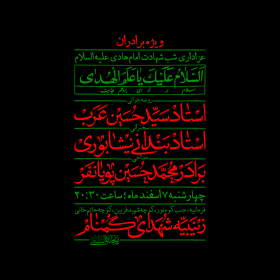 ویژه برادران
عزاداری شب شهادت امام هادی علیه السلام
السلام علیک یا علم الهدی
استاد سید حسین عرب
استاد بندانی نیشابوری
برادر محمد حسین پویانفر
چهارشنبه ۷ اسفند ماه؛ ساعت ۲۰:۳۰
زینبیه شهدای گمنام